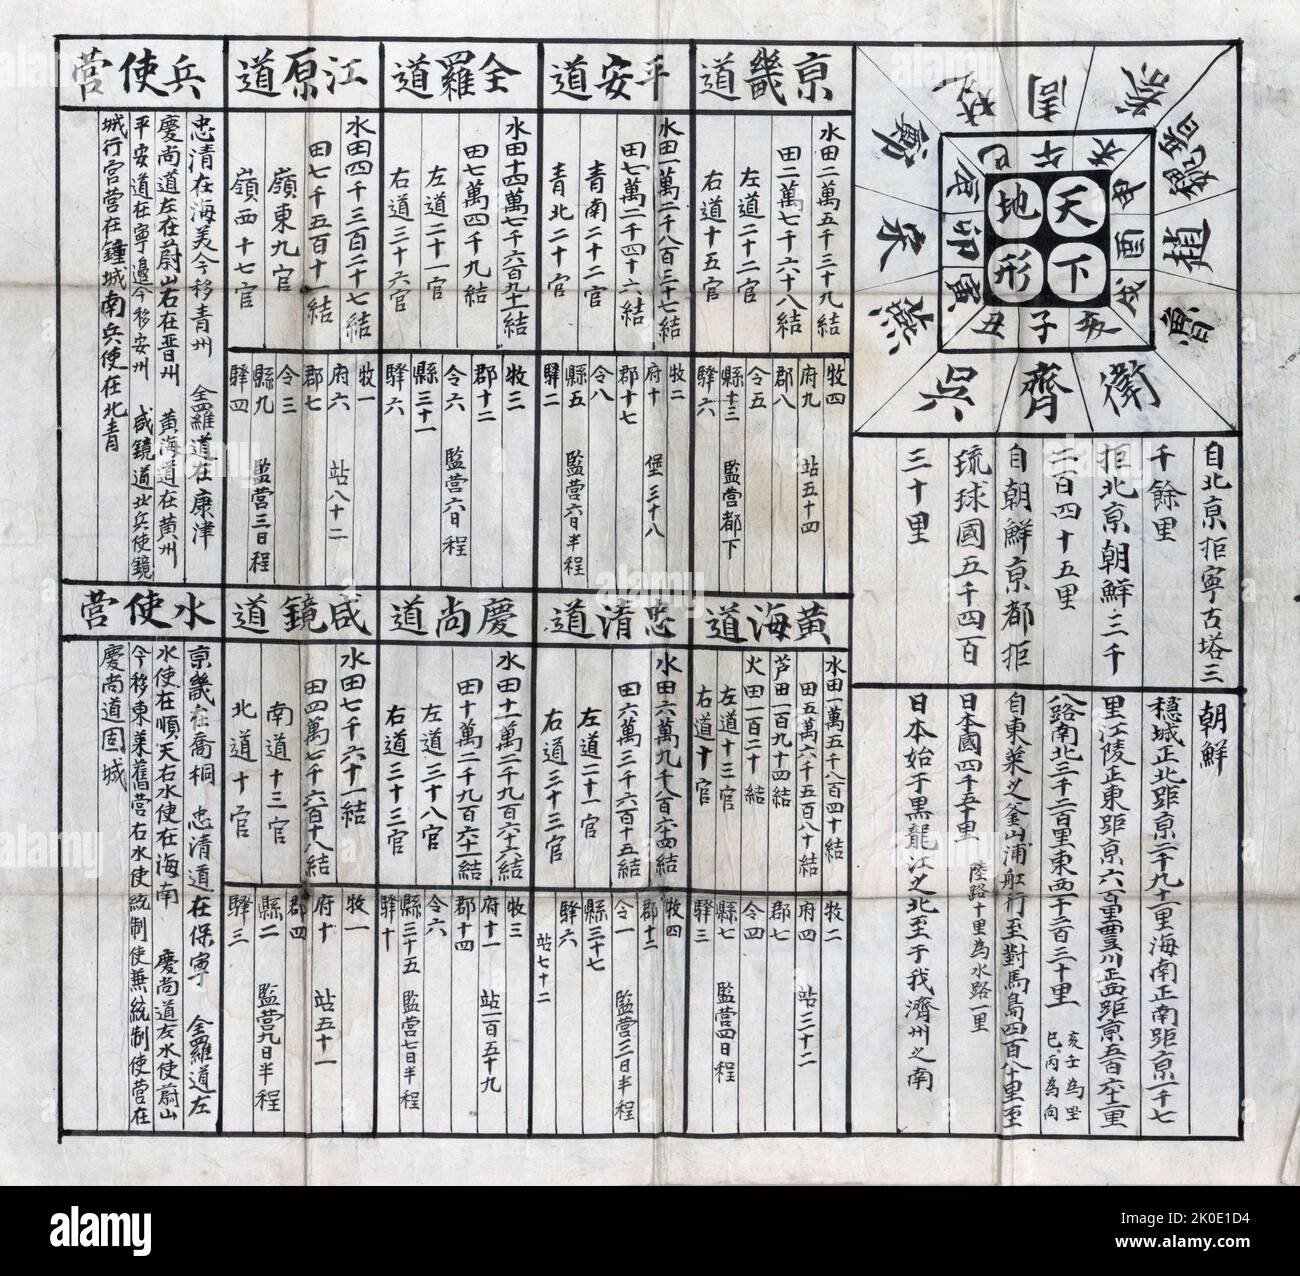 天下
地形
子
丑
寅
卯
辰
巳
午
未
申
酉
戌
亥
齊
吳
燕
宋
鄭
楚
周
秦
趙
魯
衛
自北京距寧古塔三
千餘里
距北京朝鮮三千
二百四十五里
自朝鮮京都距
琉球國五千四百
三十里
朝鮮
穩城正北距京二千九十一里海南正南距京一千七
里江陵正東距京六百里豊川正西距京五百六十里
八路南北三千二百里東西千二百三十里
亥壬為坐
巳丙為向
自東萊之釜山浦舡行至對馬島四百八十里至
日本國四千五十里
陸路十里為水路一里
日本始于黑龍江之北至于我濟州之南
京畿道
水田二萬五千三十九結
田二萬七千六十八結
左道二十二官
右道十五官
牧四
府九
郡八
令五
縣十三
驛六
站五十四
監營都下
平安道
水田一萬二千八百二十七結
田七萬二千四十六結
青南二十二官
青北二十官
牧二
府十
郡十七
令八
縣五
驛二
堡三十八
監營六日半程
全羅道
水田十四萬七千六百九十一結
田七萬四千九結
左道二十一官
右道三十六官
牧三
郡十二
令六
縣三十一
驛六
監營六日程
江原道
水田四千三百二十七結
田七千五百十一結
嶺東九官
嶺西十七官
牧一
府六
郡七
令三
縣九
驛四
站八十二
監營三日程
兵使營
忠清在海美今移青州 全羅道在康津
慶尚道左在蔚山右在晋州 黄海道在黄州
平安道在寧邊今移安州 咸鏡道北兵使鏡
城行宮營在鍾城南兵使在北青
黃海道
水田一萬五千八百四十結
田五萬六千五百八十結
芦田一百九十四結
火田一百二十結
左道十三官
右道十官
牧二
府四
郡七
令四
縣七
驛三
站三十二
監營四日程
忠清道
水田六萬九千八百六十四結
田六萬三千六百十五結
左道二十一官
右道三十三官
牧四
郡十二
令一
縣三十七
驛六
站七十二
監營三日半程
慶尚道
水田十一萬二千九百六十六結
田十萬二千九百六十一結
左道三十八官
右道三十三官
牧三
府十一
郡十四
令六
縣三十五
驛十
站一百五十九
監營七日半程
咸鏡道
水田七千六十一結
田四萬七千六百十八結
南道十三官
北道十官
牧一
府十
郡四
縣二
驛三
站五十一
監營九日半程
水使營
京畿在喬桐 忠清道在保寧 全羅道左
水使在順天右水使在海南 慶尚道左水使蔚山
今移東萊舊營右水使統制使兼統制使營在
慶尚道固城
alamy
Image ID: 2K0E1D4
www.alamy.com